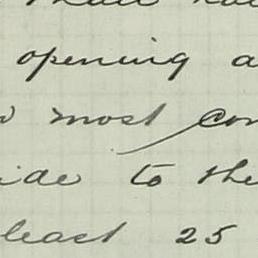 opening a
most con
ide to the
least 25